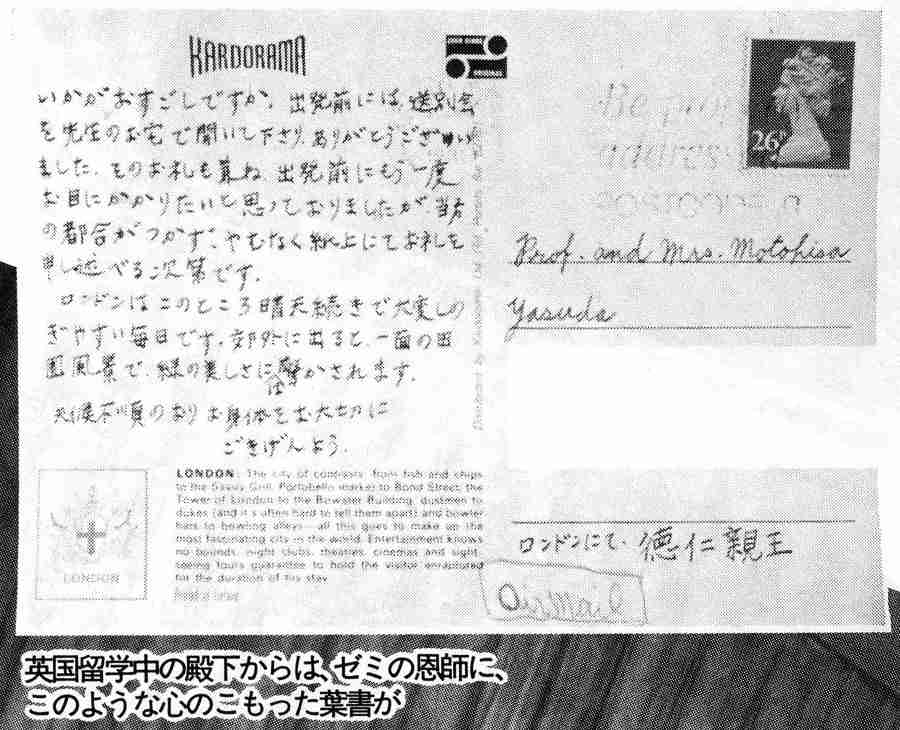 KARDORAMA
いかがおすごしですか。出発前には、送別会
を先生のお宅で開いて下さり、ありがとうございい
ました。そのお礼も兼ね、出発前にもう一度
お目にかかりたいと思っておりましたが、当方
の都合がつかず、やむなく紙上にてお礼を
申し述べる次第です。
ロンドンはこのところ晴天続きで大変しの
ぎやすい毎日です。郊外に出ると、一面の田
園風景で、緑の美しさに驚かされます。
天候不順のおりお身体をお大切に
ごきげんよう。
LONDON: The city of contrasts, from fish and chips
to the Savoy Grill, Portobello market to Bond Street, the
Tower of London to the Bowater Building, dustmen to
dukes (and it's often hard to tell them apart) and bowler
hats to bowling alleys—all this goes to make up the
most fascinating city in the world. Entertainment knows
no bounds, night clubs, theatres, cinemas and sight-
seeing tours guarantee to hold the visitor enraptured
for the duration of his stay.
LONDON
ORIGINAL
26P
Be
Prof. and Mrs. Motohisa
Yasuda
ロンドンにて、徳仁親王
Air Mail
英国留学中の殿下からは、ゼミの恩師に、
このような心のこもった葉書が